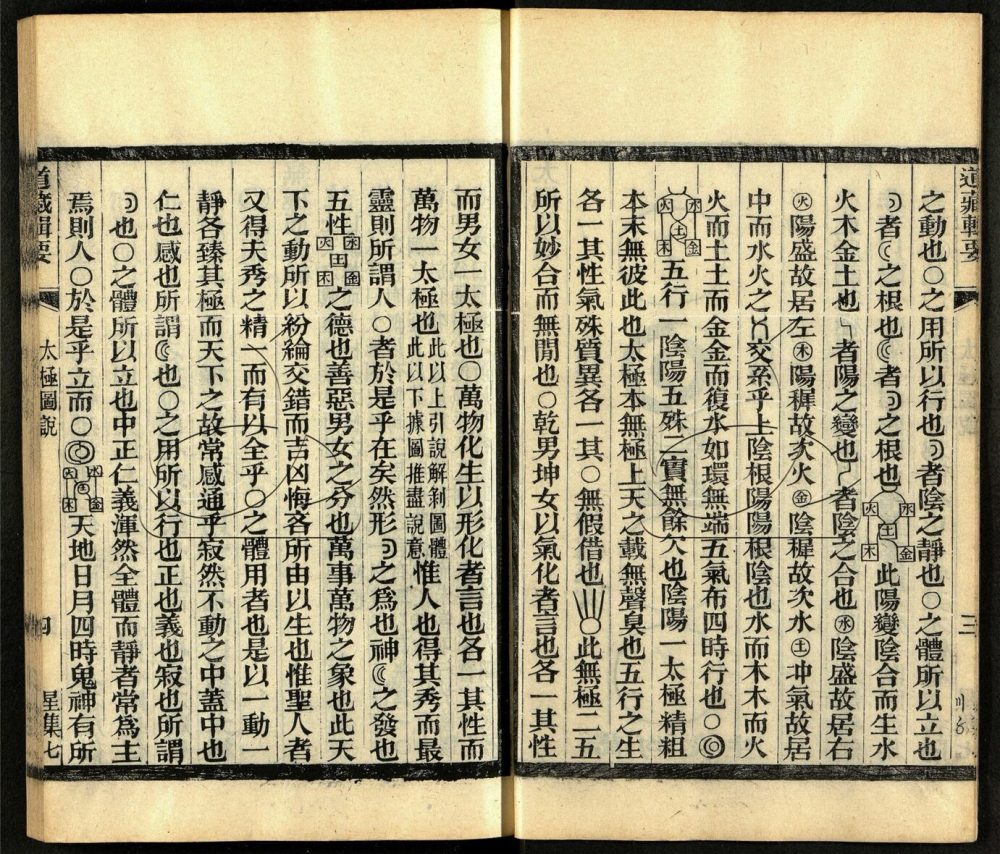 道藏輯要
三
之動也○之用所以行也者陰之靜也○之體所以立也
者之根也者之根也水火土木金此陽變陰合而生水
火木金土也者陽之變也者陰之合也㊌陰盛故居右
㊋陽盛故居左㊍陽穉故次火㊎陰穉故次水㊏冲氣故居
中而水火之交系乎上陰根陽陽根陰也水而木木而火
火而土土而金金而復水如環無端五氣布四時行也○◎
水火土金木五行一陰陽五殊二實無餘欠也陰陽一太極精粗
本末無彼此也太極本無極上天之載無聲臭也五行之生
各一其性氣殊質異各一其○無假借也○此無極二五
所以妙合而無閒也○乾男坤女以氣化者言也各一其性
而男女一太極也○萬物化生以形化者言也各一其性而
萬物一太極也此以上引說解剝圖體此以下據圖推盡說意惟人也得其秀而最
靈則所謂人○者於是乎在矣然形之爲也神之發也
五性水火土金木之德也善惡男女之分也萬事萬物之象也此天
下之動所以紛綸交錯而吉凶悔吝所由以生也惟聖人者
又得夫秀之精一而有以全乎○之體用者也是以一動一
靜各臻其極而天下之故常感通乎寂然不動之中蓋中也
仁也感也所謂也○之用所以行也正也義也寂也所謂
也○之體所以立也中正仁義渾然全體而靜者常爲主
焉則人○於是乎立而○◎水火土金木天地日月四時鬼神有所
道藏輯要
太極圖說
四
星集七